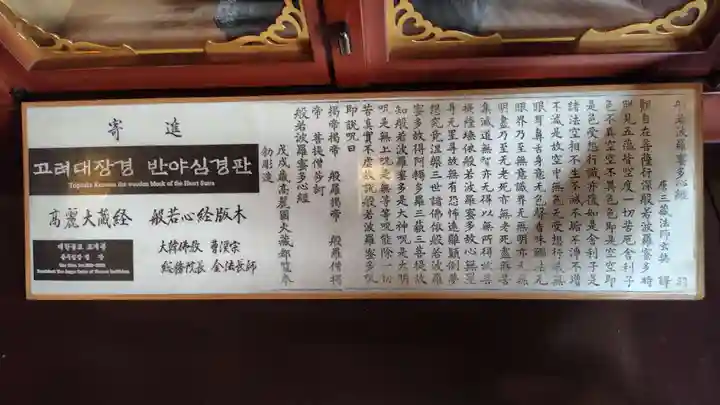 寄進
고려대장경 반야심경판
Tripitaka Koreana the wooden block of the Heart Sutra
高麗大蔵経 般若心経版木
大韓佛敎 曹溪宗
総務院長 金法長師
般若波羅蜜多心経
唐三藏法師玄奘 譯
觀自在菩薩行深般若波羅蜜多時
照見五蘊皆空度一切苦厄舍利子
色不異空空不異色色即是空空即
是色受想行識亦復如是舍利子是
諸法空相不生不滅不垢不淨不增
不減是故空中無色無受想行識無
眼耳鼻舌身意無色聲香味觸法無
眼界乃至無意識界無無明亦無無
明盡乃至無老死亦無老死盡無苦
集滅道無智亦無得以無所得故菩
提薩埵依般若波羅蜜多故心無罣
㝵無罣㝵故無有恐怖遠離顚倒夢
想究竟涅槃三世諸佛依般若波羅
蜜多故得阿耨多羅三藐三菩提故
知般若波羅蜜多是大神呪是大明
呪是無上呪是無等等呪能除一切
苦眞實不虛故說般若波羅蜜多呪
即說呪曰
揭帝揭帝 般羅揭帝 般羅僧揭
帝 菩提僧莎訶
般若波羅蜜多心經
戊戌歲高麗國大藏都監奉
勅彫造